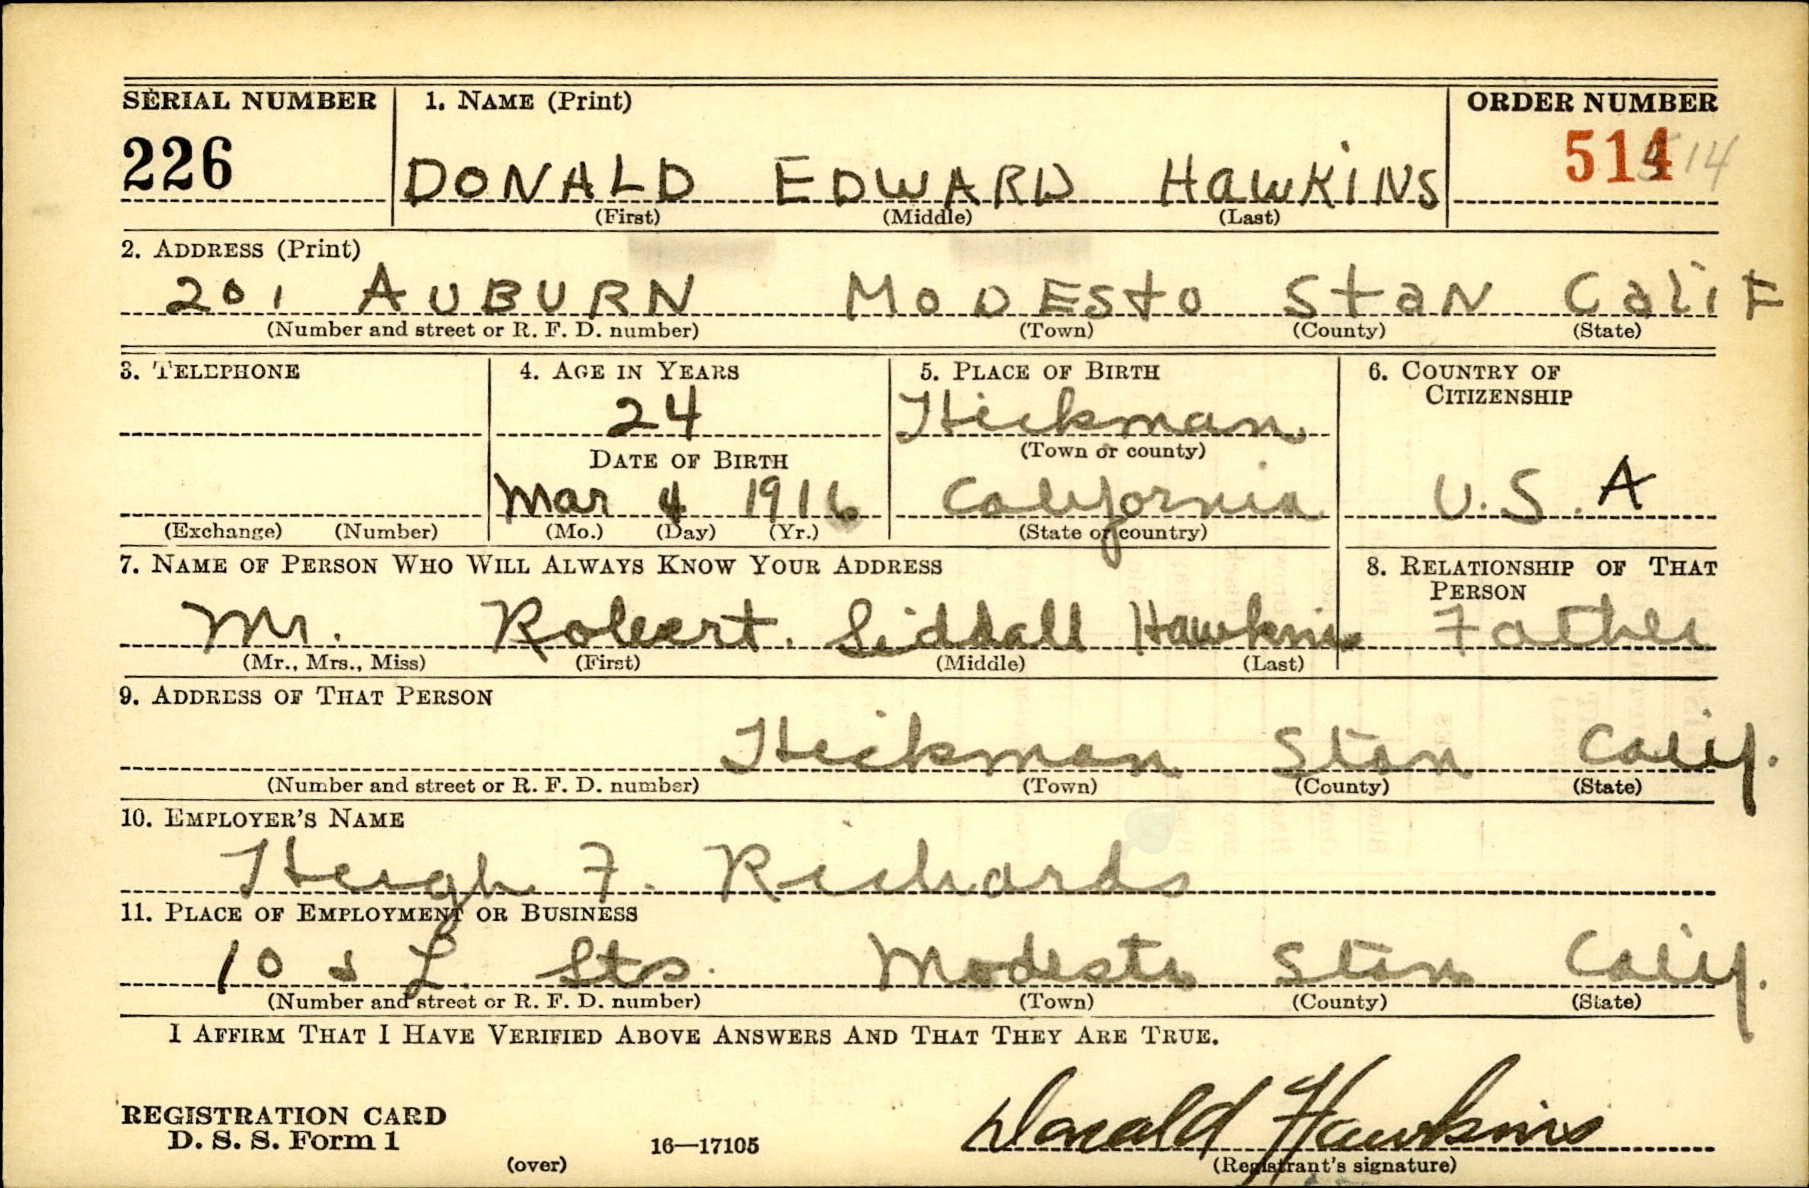 SERIAL NUMBER 1. NAME (Print) ORDER NUMBER
226 DONALD EDWARD HAWKINS 514 514
(First) (Middle) (Last)
2. ADDRESS (Print)
201 AUBURN MODESTO STAN CALIF
(Number and street or R. F. D. number) (Town) (County) (State)
3. TELEPHONE 4. AGE IN YEARS 5. PLACE OF BIRTH 6. COUNTRY OF
CITIZENSHIP
24 Hickman
DATE OF BIRTH (Town or county)
Mar 4 1916 California U.S.A
(Exchange) (Number) (Mo.) (Day) (Yr.) (State or country)
7. NAME OF PERSON WHO WILL ALWAYS KNOW YOUR ADDRESS 8. RELATIONSHIP OF THAT
PERSON
Mr. Robert Siddall Hawkins Father
(Mr., Mrs., Miss) (First) (Middle) (Last)
9. ADDRESS OF THAT PERSON
Hickman Stan Calif.
(Number and street or R. F. D. number) (Town) (County) (State)
10. EMPLOYER'S NAME
F. Richards
11. PLACE OF EMPLOYMENT OR BUSINESS
10 & L Sts. Modesto Stan Calif.
(Number and street or R. F. D. number) (Town) (County) (State)
I AFFIRM THAT I HAVE VERIFIED ABOVE ANSWERS AND THAT THEY ARE TRUE.
Donald Hawkins
REGISTRATION CARD
D. S. S. Form 1 16—17105
(over) (Registrant's signature)